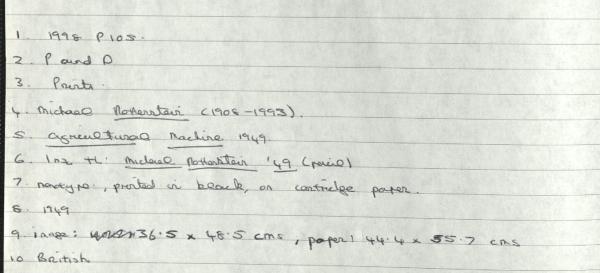 1. 1998 P105.
2. P and D
3. Prints.
4. Michael Rothenstein (1908-1993).
5. Agricultural Machine 1949
6. Ins t.l: Michael Rothenstein '49 (pencil)
7. monotype, printed in black, on cartridge paper.
8. 1949
9. image: 36.5 x 48.5 cms, paper: 44.4 x 55.7 cms
10. British